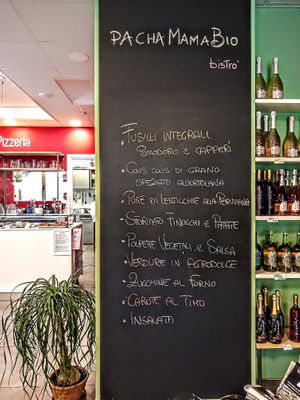 PACHAMAMABIO
bistro'
Pizzeria
• FUSILLI INTEGRALI
POMODORO E CAPPERI
• COUS COUS DI GRANO
SPEZIATO ALL'ORTOLANA
• PURÈ DI LENTICCHIE ALLA PERUVIANA
• STORTATO FINOCCHI E PATATE
• POLPETTE VEGETALI E SALSA
• VERDURE IN AGRODOLCE
• ZUCCHINE AL FORNO
• CAROTE AL TIMO
• INSALATA